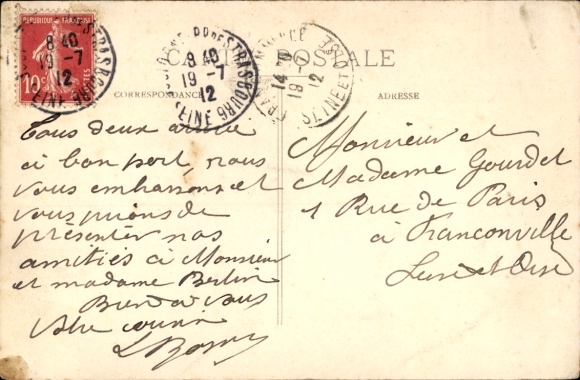 REPUBLIQUE FRANÇAISE
10c POSTES
8 40
19 - 7
12
STRASBOURG
SEINE
8 40
19 - 7
12
STRASBOURG
SEINE
14
19 7
12
SEINE ET OISE
POSTALE
CORRESPONDANCE
ADRESSE
Tous deux
à bon port, nous
vous embrassons et
vous prions de
présenter nos
amitiés à Monsieur
et madame Berlin
Bien à vous
Votre cousin
Monsieur et
Madame Gourdet
1 Rue de Paris
à Franconville
Seine et Oise